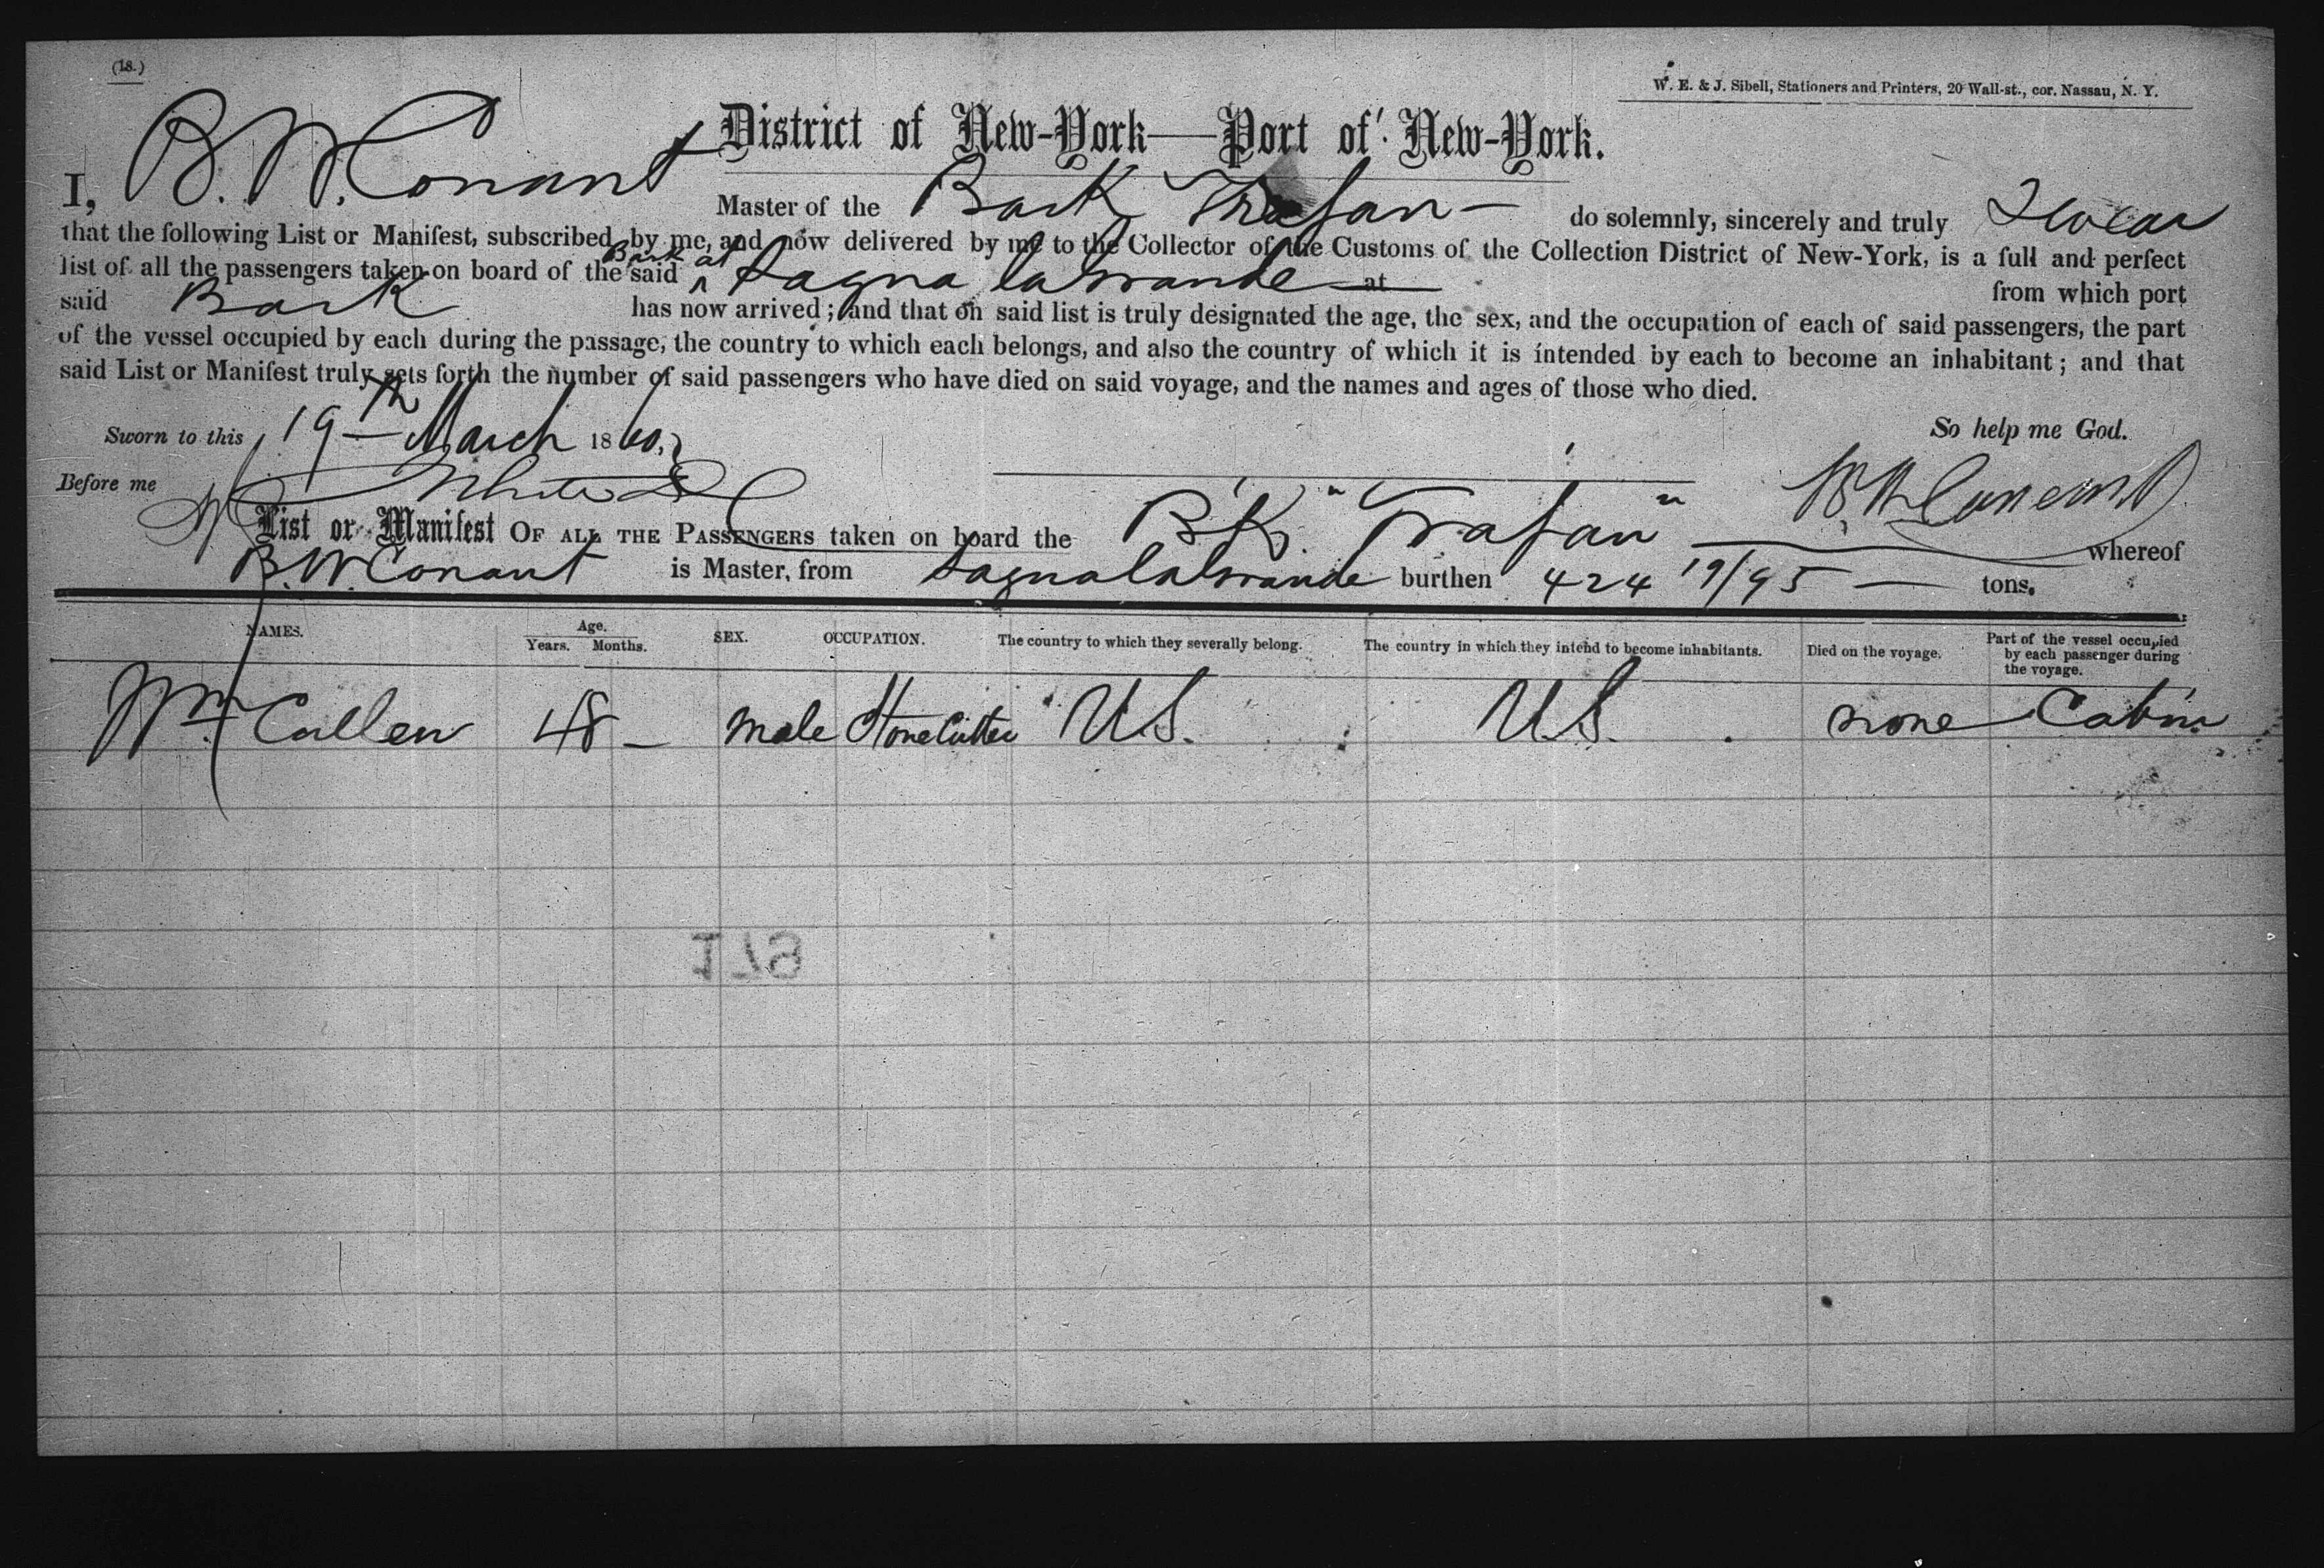 (18.)
W. E. & J. Sibell, Stationers and Printers, 20 Wall-st., cor. Nassau, N. Y.
District of New-York—Port of New-York.
I, B. W. Conant Master of the Bark Trajan — do solemnly, sincerely and truly Swear
that the following List or Manifest, subscribed by me, and now delivered by me to the Collector of the Customs of the Collection District of New-York, is a full and perfect
list of all the passengers taken on board of the said Bark at Sagua la Grande at from which port
said Bark has now arrived; and that on said list is truly designated the age, the sex, and the occupation of each of said passengers, the part
of the vessel occupied by each during the passage, the country to which each belongs, and also the country of which it is intended by each to become an inhabitant; and that
said List or Manifest truly sets forth the number of said passengers who have died on said voyage, and the names and ages of those who died.
Sworn to this 19th March 1860, So help me God.
Before me White B. W. Conant
List or Manifest OF ALL THE PASSENGERS taken on board the Bk. "Trajan" whereof
B. W. Conant is Master, from Sagua la Grande burthen 424 19/95 — tons.
NAMES. Age. Years. Months. SEX. OCCUPATION. The country to which they severally belong. The country in which they intend to become inhabitants. Died on the voyage. Part of the vessel occupied by each passenger during the voyage.
Wm. Cullen 48 — male Stone Cutter U.S. U.S. none Cabin
179